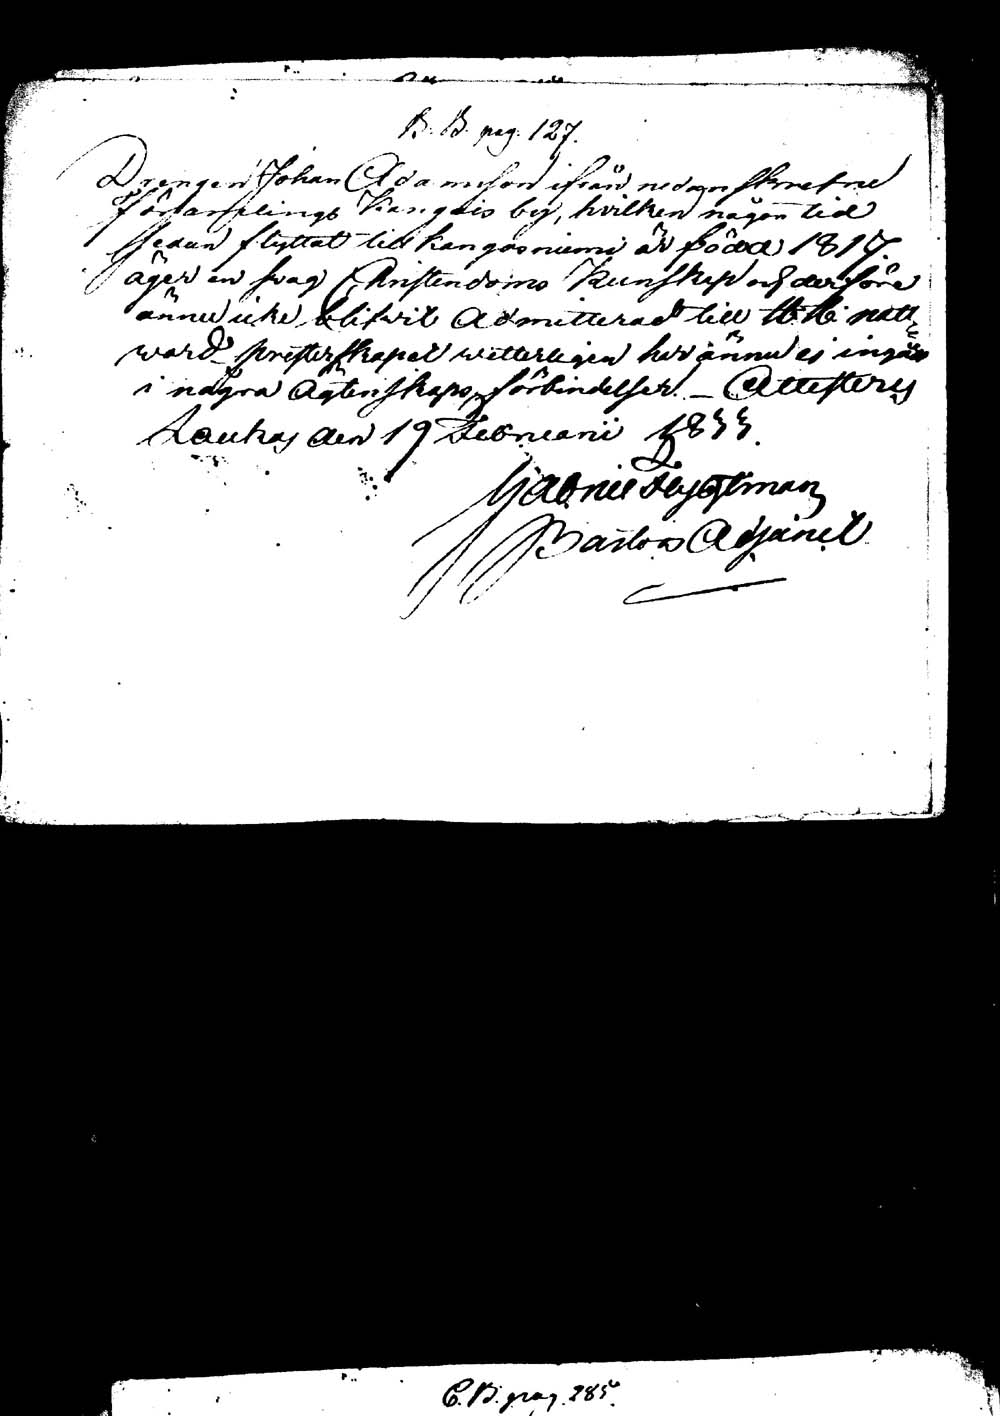 B. B. pag. 127.
Drengen Johan Adamsson ifrån nedanskrefne
församlings Kangais by, hvilken någon tid
sedan flyttat till Kangasniemi är född 1817.
äger en svag Christendoms Kunskap och derföre
ännu icke blifvit admitterad till H. H. natt
ward. Presterskapet wetterligen har ännu ej ingått
i några ägtenskaps förbindelser. – Attesteras
Laukas den 19 Februarii 1833.
Gabriel Flygtman
Pastors Adjunct
C.B. pag. 285